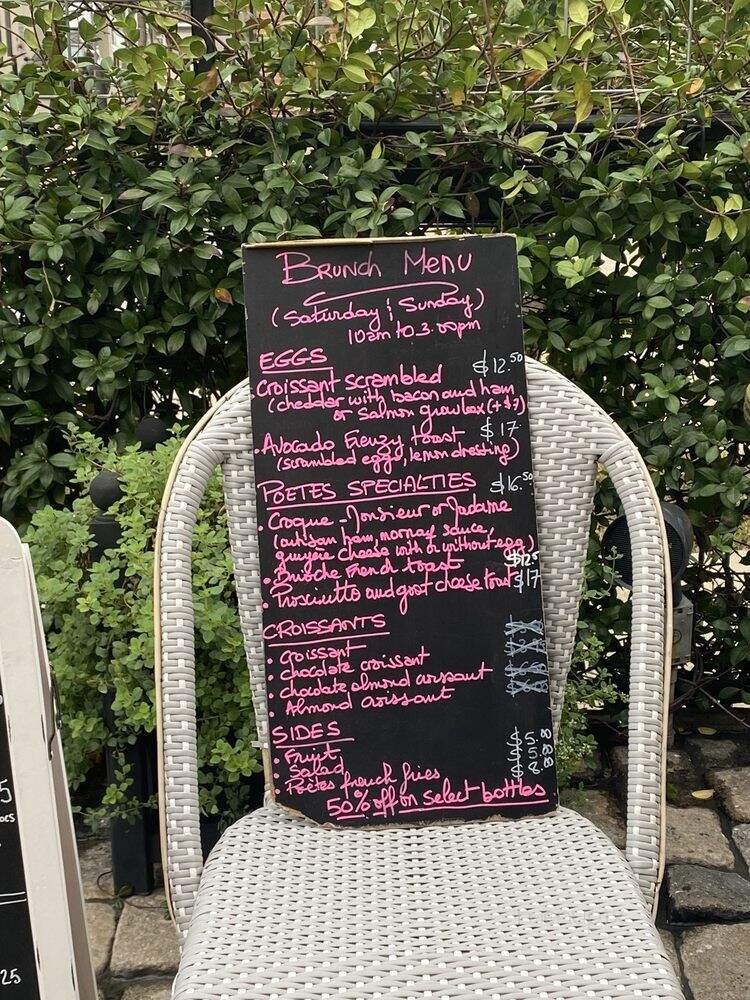 Brunch Menu
(Saturday & Sunday)
10am to 3.00pm
EGGS
$12.50
Croissant scrambled
(cheddar with bacon and ham
or Salmon gravlax (+$7)
. Avocado Frenzy toast $17
(scrambled eggs, lemon dressing)
POËTES SPECIALTIES $16.50
. Croque-Monsieur or Madame
(artisan ham, mornay sauce,
gruyère cheese with or without egg)
. Brioche French toast
. Prosciutto and goat cheese toast $17
CROISSANTS
. Croissant
. chocolate croissant
. chocolate almond croissant
. Almond croissant
SIDES
. Fruit
. Salad
. Poëtes french fries
50% off on select bottles
5
25